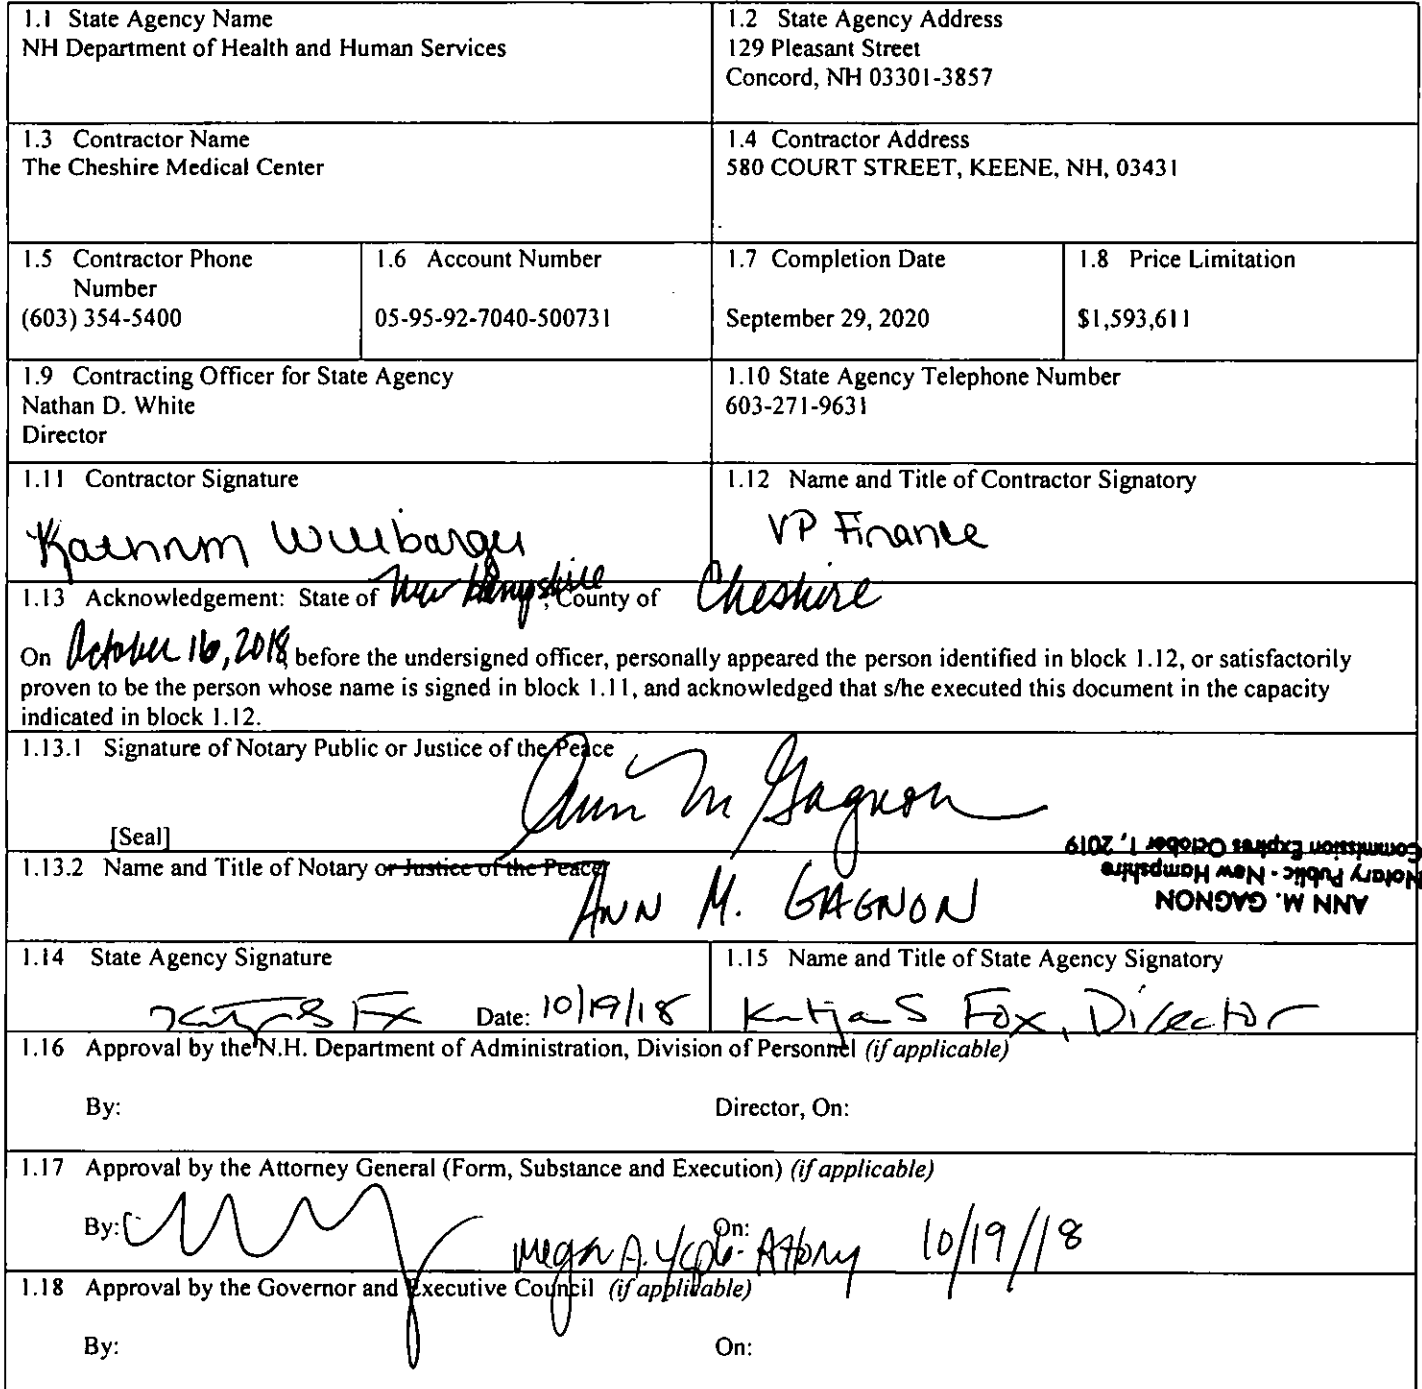 1.1 State Agency Name
NH Department of Health and Human Services
1.2 State Agency Address
129 Pleasant Street
Concord, NH 03301-3857
1.3 Contractor Name
The Cheshire Medical Center
1.4 Contractor Address
580 COURT STREET, KEENE, NH, 03431
1.5 Contractor Phone
Number
(603) 354-5400
1.6 Account Number
05-95-92-7040-500731
1.7 Completion Date
September 29, 2020
1.8 Price Limitation
$1,593,611
1.9 Contracting Officer for State Agency
Nathan D. White
Director
1.10 State Agency Telephone Number
603-271-9631
1.11 Contractor Signature
1.12 Name and Title of Contractor Signatory
VP Finance
1.13 Acknowledgement: State of New Hampshire, County of Cheshire
On October 16, 2018, before the undersigned officer, personally appeared the person identified in block 1.12, or satisfactorily
proven to be the person whose name is signed in block 1.11, and acknowledged that s/he executed this document in the capacity
indicated in block 1.12.
1.13.1 Signature of Notary Public or Justice of the Peace
Ann M Gagnon
[Seal]
1.13.2 Name and Title of Notary or Justice of the Peace
ANN M. GAGNON
ANN M. GAGNON
Notary Public - New Hampshire
Commission Expires October 1, 2019
1.14 State Agency Signature
Date: 10/19/18
1.15 Name and Title of State Agency Signatory
Katja S Fox, Director
1.16 Approval by the N.H. Department of Administration, Division of Personnel (if applicable)
By:
Director, On:
1.17 Approval by the Attorney General (Form, Substance and Execution) (if applicable)
By:
On: 10/19/18
1.18 Approval by the Governor and Executive Council (if applicable)
By:
On: